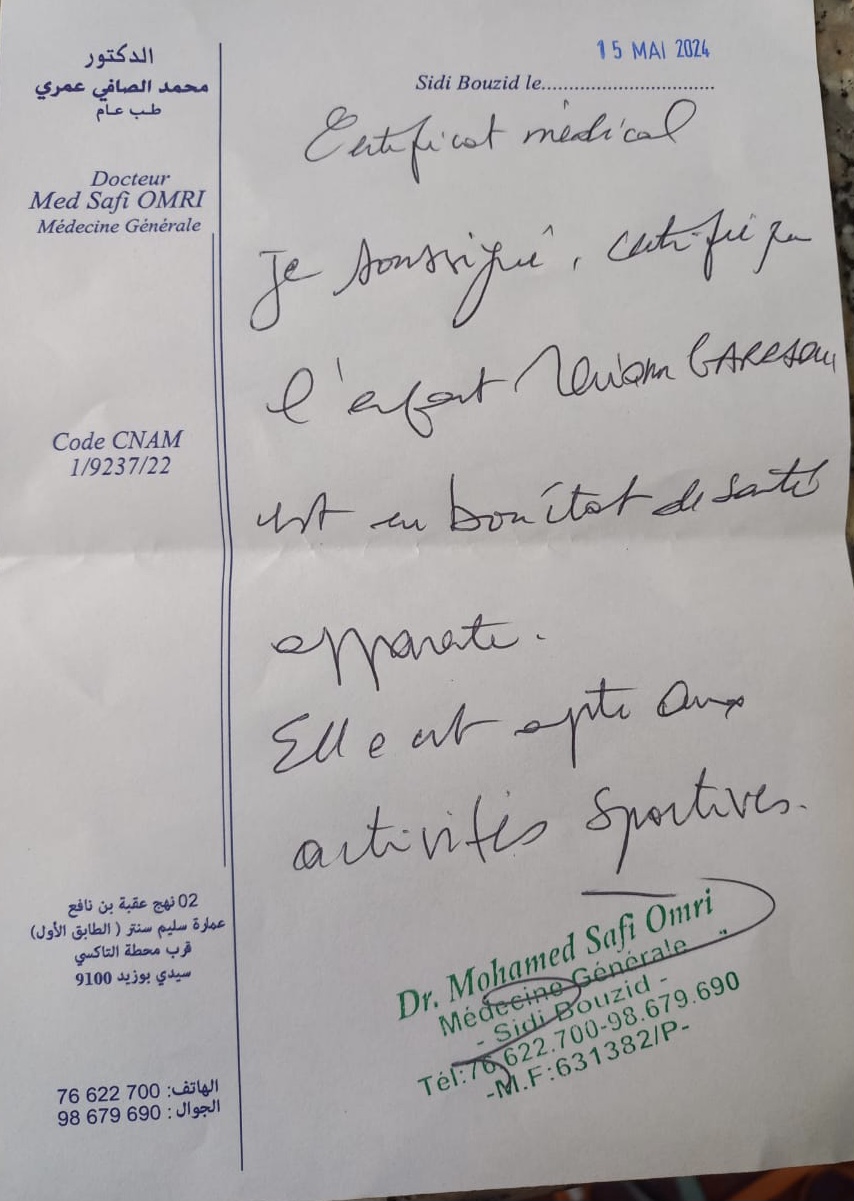 الدكتور
محمد الصافي عمري
طب عام
Docteur
Med Safi OMRI
Médecine Générale
Code CNAM
1/9237/22
02 نهج عقبة بن نافع
عمارة سليم سنتر ( الطابق الأول)
قرب محطة التاكسي
سيدي بوزيد 9100
الهاتف: 76 622 700
الجوال : 98 679 690
15 MAI 2024
Sidi Bouzid le
Certificat médical
Je soussigné, certifie que
l'enfant
est en bon état de santé
apparente.
Elle est apte aux
activités sportives.
Dr. Mohamed Safi Omri
Médecine Générale
- Sidi Bouzid -
Tél:76.622.700-98.679.690
-M.F:631382/P-